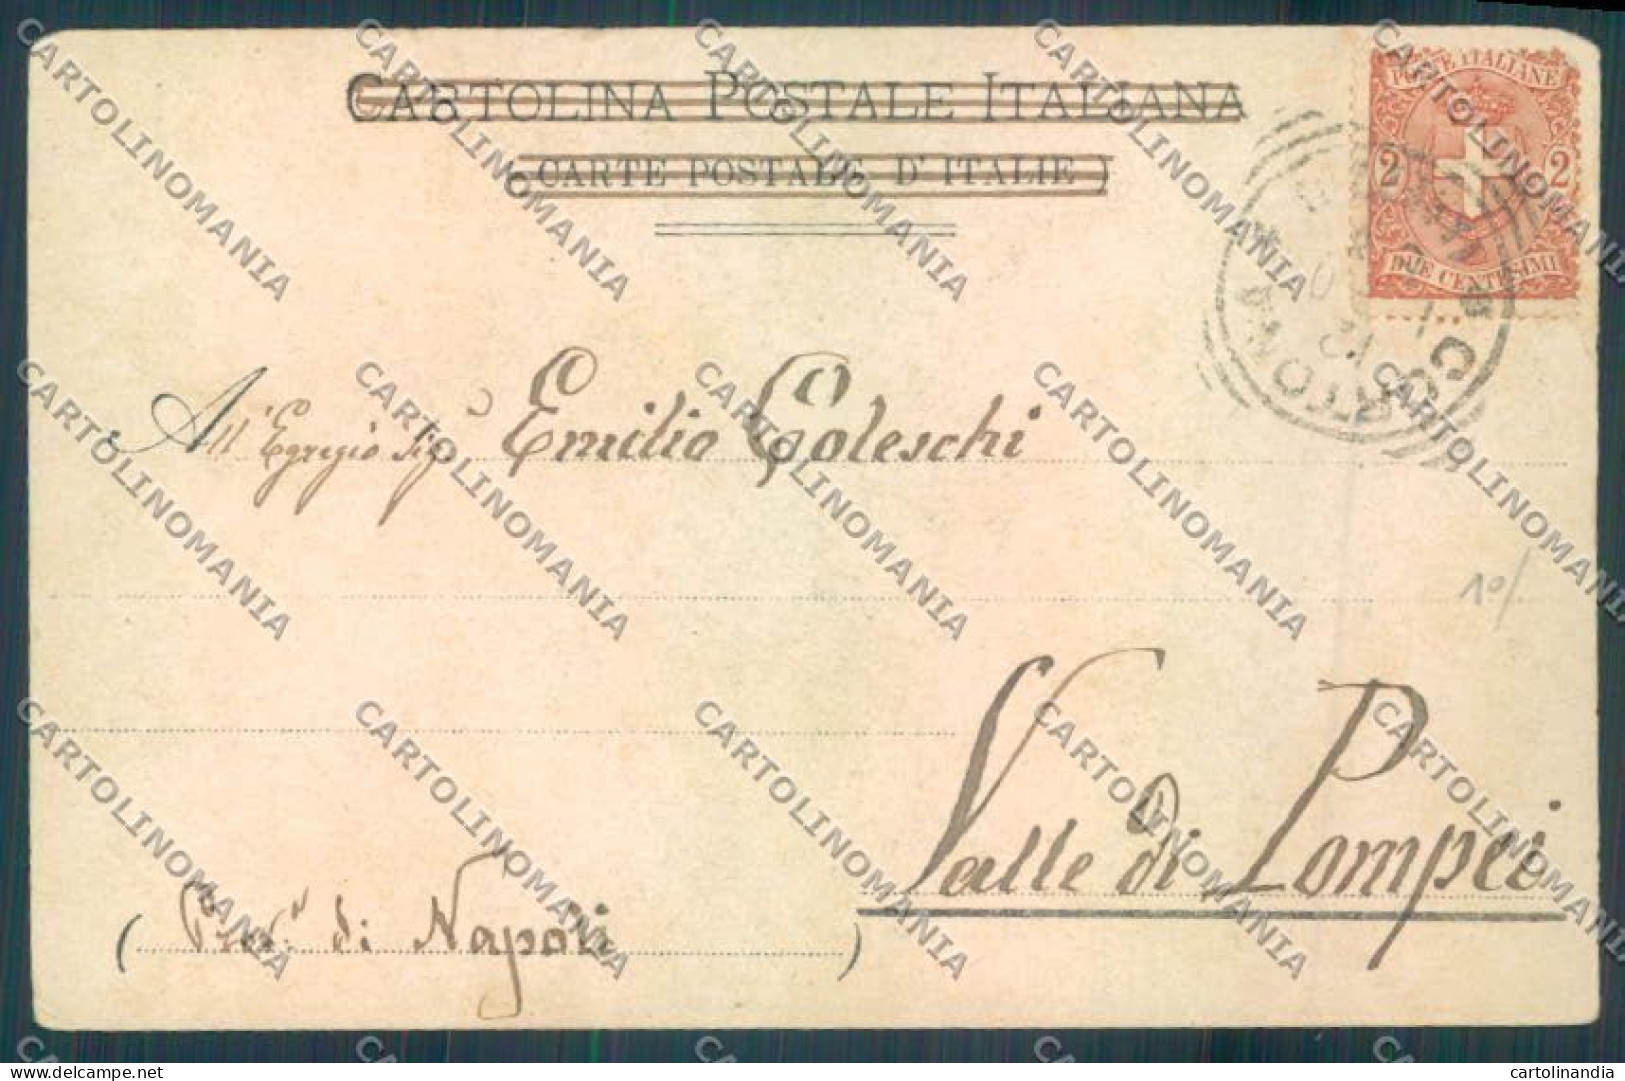 CARTOLINA POSTALE ITALIANA
(CARTE POSTALE D'ITALIE)
POSTE ITALIANE
2 2
DUE CENTESIMI
CORTONA
All' Egregio Sig. Emilio Coleschi
10/
Valle di Pompei
(Prov. di Napoli)
CARTOLINOMANIA
cartolinandia